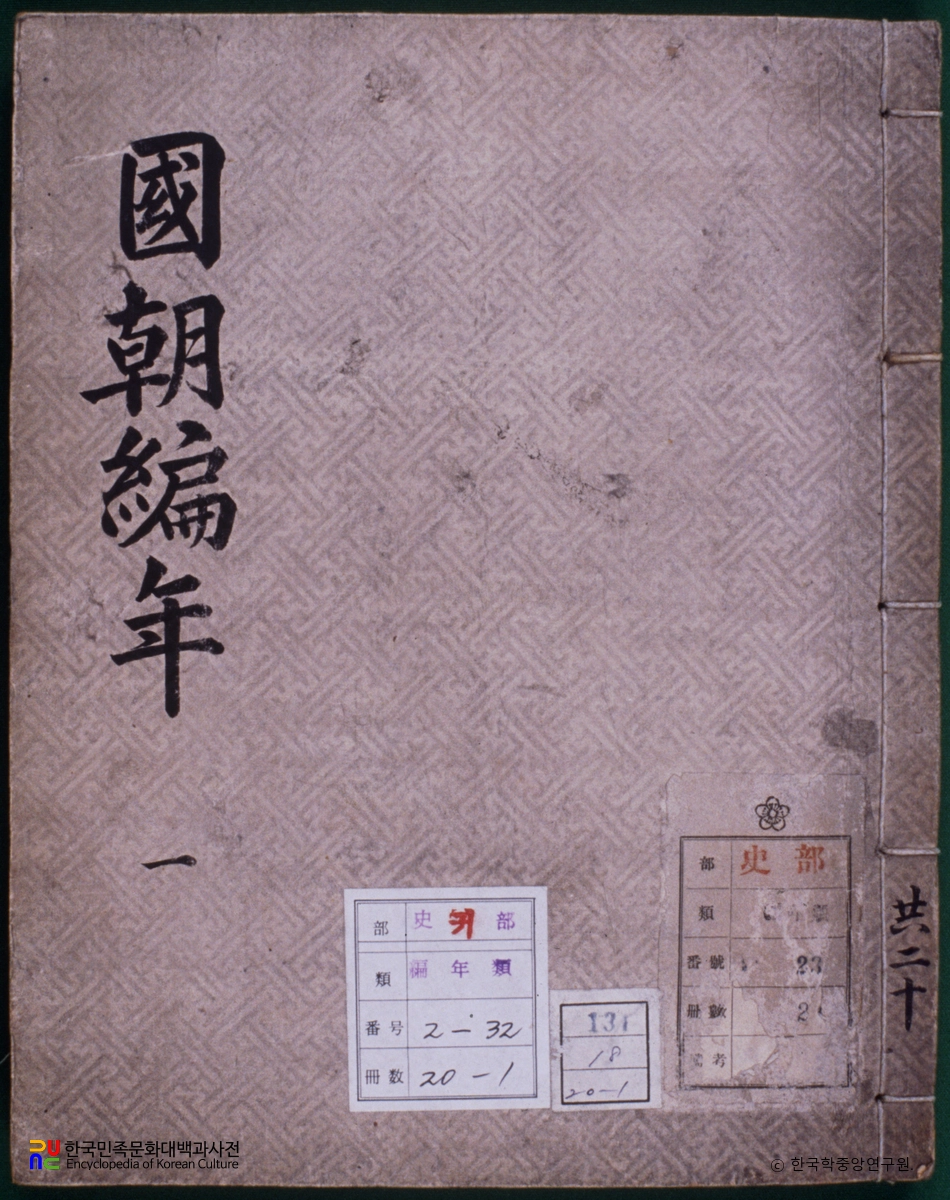 國朝編年
一
共二十
部 史 部
類 編年類
番号 2-32
冊数 20-1
131
18
20-1
部 史部
類
番號 23
冊數
考
한국민족문화대백과사전
Encyclopedia of Korean Culture
© 한국학중앙연구원